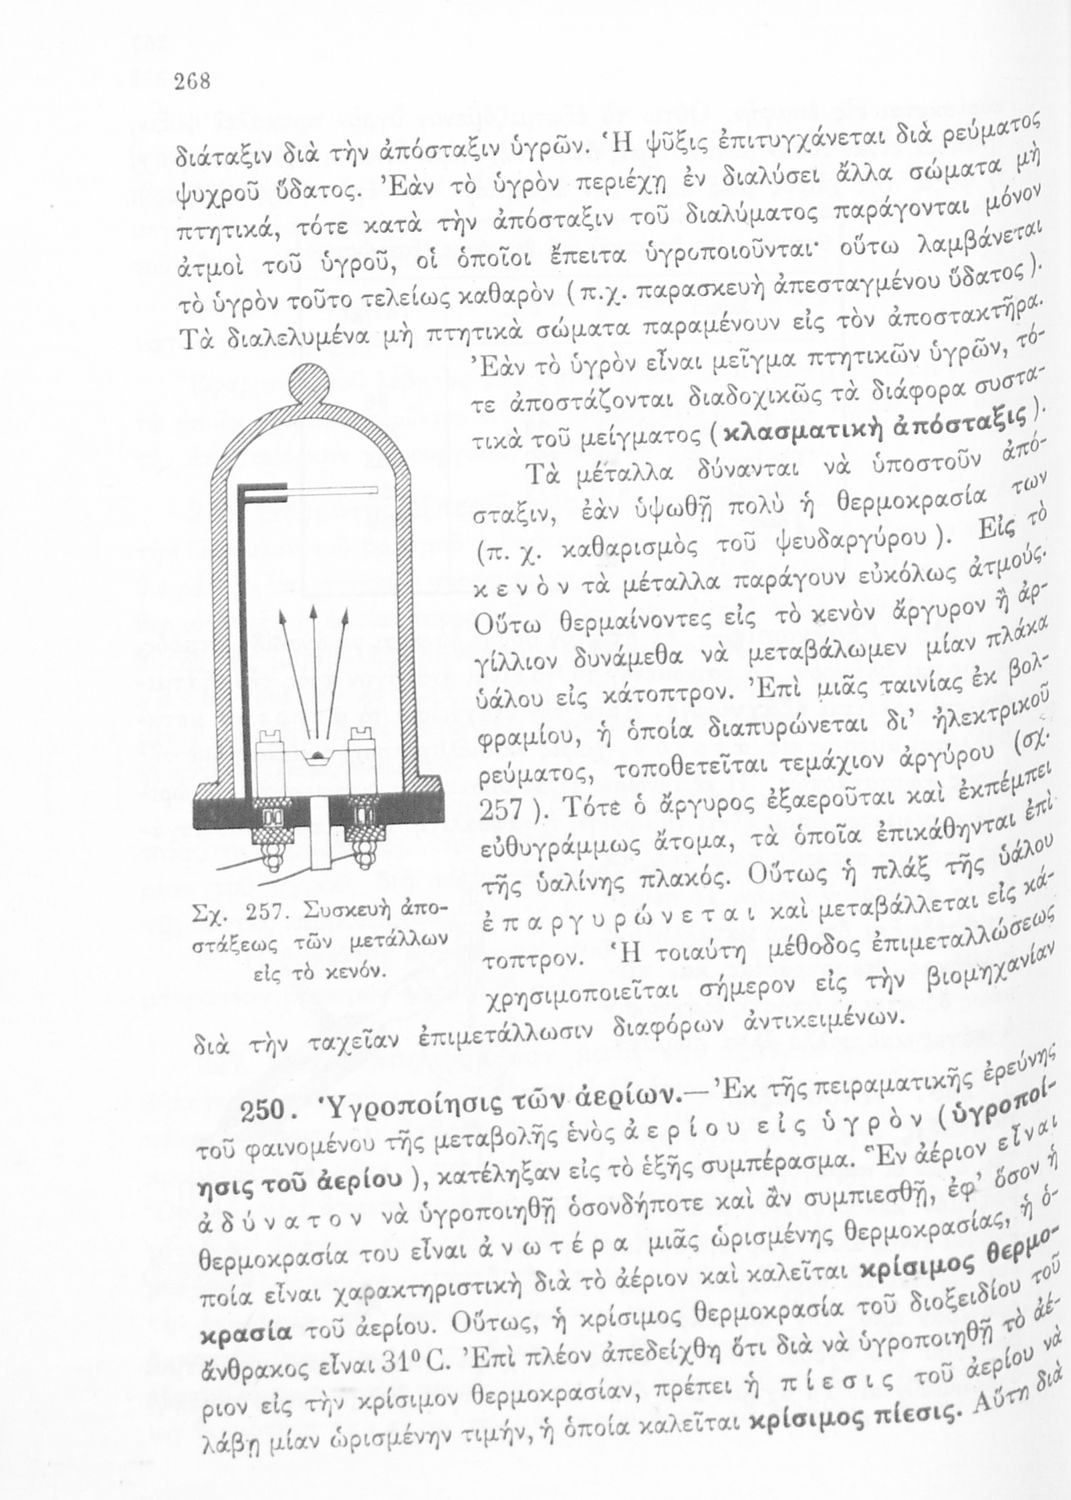 268
διάταξιν διὰ τὴν ἀπόσταξιν ὑγρῶν. Ἡ ψῦξις ἐπιτυγχάνεται διὰ ρεύματος
ψυχροῦ ὕδατος. Ἐὰν τὸ ὑγρὸν περιέχῃ ἐν διαλύσει ἄλλα σώματα μὴ
πτητικά, τότε κατὰ τὴν ἀπόσταξιν τοῦ διαλύματος παράγονται μόνον
ἀτμοὶ τοῦ ὑγροῦ, οἱ ὁποῖοι ἔπειτα ὑγροποιοῦνται· οὕτω λαμβάνεται
τὸ ὑγρὸν τοῦτο τελείως καθαρὸν (π.χ. παρασκευὴ ἀπεσταγμένου ὕδατος).
Τὰ διαλελυμένα μὴ πτητικὰ σώματα παραμένουν εἰς τὸν ἀποστακτῆρα.
Ἐὰν τὸ ὑγρὸν εἶναι μεῖγμα πτητικῶν ὑγρῶν, τό-
τε ἀποστάζονται διαδοχικῶς τὰ διάφορα συστα-
τικὰ τοῦ μείγματος (κλασματικὴ ἀπόσταξις).
Τὰ μέταλλα δύνανται νὰ ὑποστοῦν ἀπό-
σταξιν, ἐὰν ὑψωθῇ πολὺ ἡ θερμοκρασία των
(π. χ. καθαρισμὸς τοῦ ψευδαργύρου). Εἰς τὸ
κενὸν τὰ μέταλλα παράγουν εὐκόλως ἀτμούς.
Οὕτω θερμαίνοντες εἰς τὸ κενὸν ἄργυρον ἢ ἀρ-
γίλλιον δυνάμεθα νὰ μεταβάλωμεν μίαν πλάκα
ὑάλου εἰς κάτοπτρον. Ἐπὶ μιᾶς ταινίας ἐκ βολ-
φραμίου, ἡ ὁποία διαπυρώνεται δι' ἠλεκτρικοῦ
ρεύματος, τοποθετεῖται τεμάχιον ἀργύρου (σχ.
257). Τότε ὁ ἄργυρος ἐξαεροῦται καὶ ἐκπέμπει
εὐθυγράμμως ἄτομα, τὰ ὁποῖα ἐπικάθηνται ἐπὶ
τῆς ὑαλίνης πλακός. Οὕτως ἡ πλὰξ τῆς ὑάλου
ἐπαργυρώνεται καὶ μεταβάλλεται εἰς κά-
τοπτρον. Ἡ τοιαύτη μέθοδος ἐπιμεταλλώσεως
χρησιμοποιεῖται σήμερον εἰς τὴν βιομηχανίαν
διὰ τὴν ταχεῖαν ἐπιμετάλλωσιν διαφόρων ἀντικειμένων.
Σχ. 257. Συσκευὴ ἀπο-
στάξεως τῶν μετάλλων
εἰς τὸ κενόν.
250. Ὑγροποίησις τῶν ἀερίων.— Ἐκ τῆς πειραματικῆς ἐρεύνης
τοῦ φαινομένου τῆς μεταβολῆς ἑνὸς ἀερίου εἰς ὑγρὸν (ὑγροποί-
ησις τοῦ ἀερίου), κατέληξαν εἰς τὸ ἑξῆς συμπέρασμα. Ἓν ἀέριον εἶναι
ἀδύνατον νὰ ὑγροποιηθῇ ὁσονδήποτε καὶ ἂν συμπιεσθῇ, ἐφ' ὅσον ἡ
θερμοκρασία του εἶναι ἀνωτέρα μιᾶς ὡρισμένης θερμοκρασίας, ἡ ὁ-
ποία εἶναι χαρακτηριστικὴ διὰ τὸ ἀέριον καὶ καλεῖται κρίσιμος θερμο-
κρασία τοῦ ἀερίου. Οὕτως, ἡ κρίσιμος θερμοκρασία τοῦ διοξειδίου τοῦ
ἄνθρακος εἶναι 31⁰ C. Ἐπὶ πλέον ἀπεδείχθη ὅτι διὰ νὰ ὑγροποιηθῇ τὸ ἀέ-
ριον εἰς τὴν κρίσιμον θερμοκρασίαν, πρέπει ἡ πίεσις τοῦ ἀερίου νὰ
λάβῃ μίαν ὡρισμένην τιμήν, ἡ ὁποία καλεῖται κρίσιμος πίεσις. Αὕτη διὰ